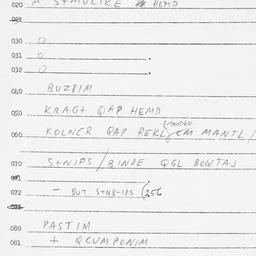 020 A HEMD
030 O
031 O
032 O
040 BUZBIM
050 KRAGT QAP HEMD
060 KOLNER QAP REKL MANTL /
070 S+NIPS / BINDE QGL BOWTAJ
071
072 - BUT S+NB-IPS (256
080 PASTIM
081 + QCUMPONIM